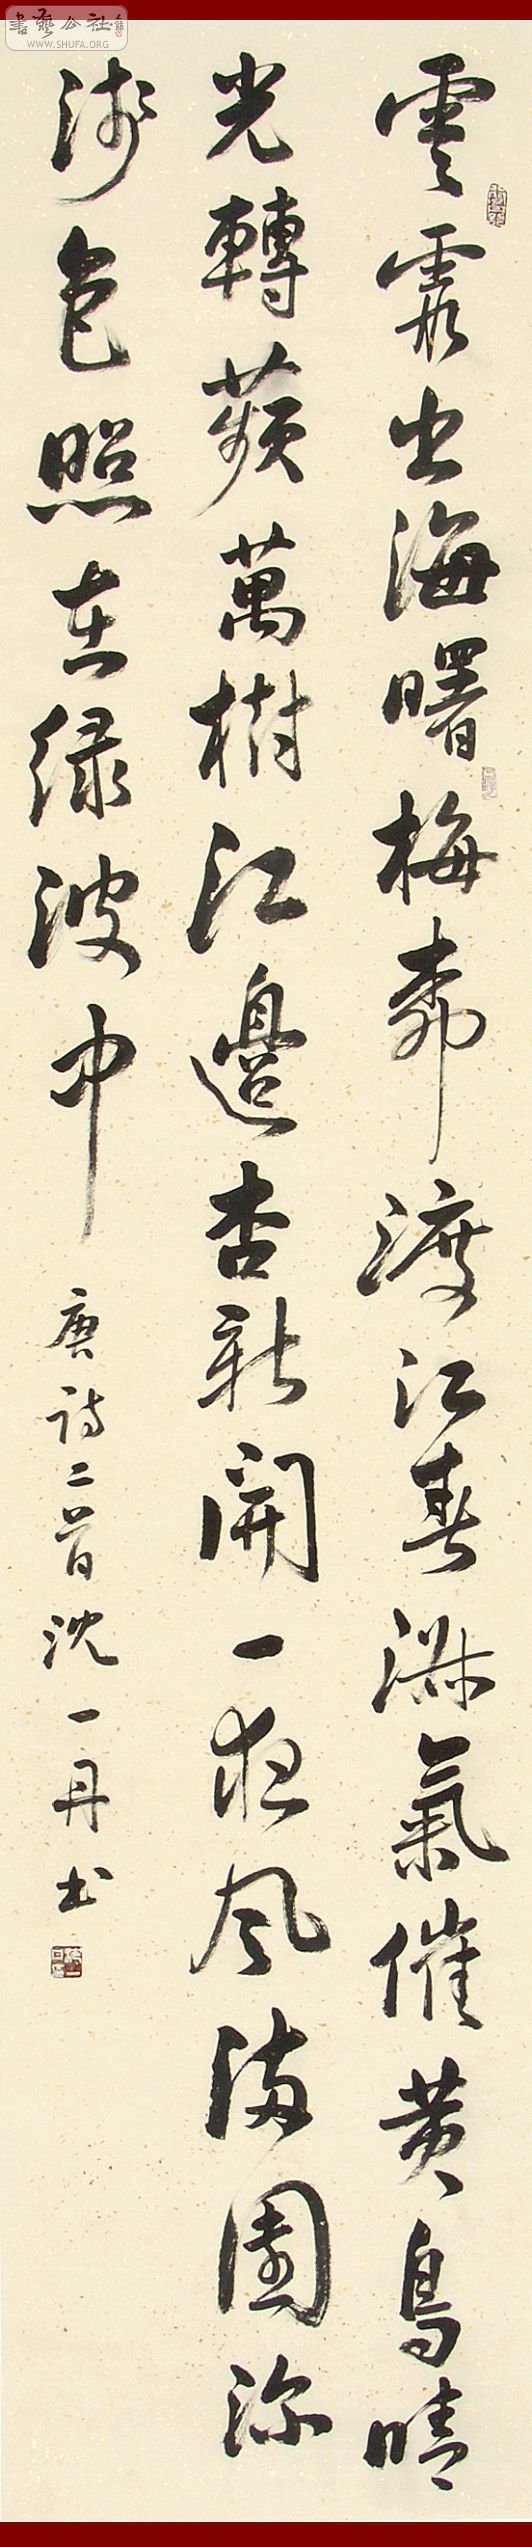 雲霞出海曙梅柳渡江春淑氣催黄鳥晴
光轉蘋萬樹江邊杏新開一夜風滿園深
淺色照在绿波中
唐诗二首沈一丹书
書藝公社
WWW.SHUFA.ORG